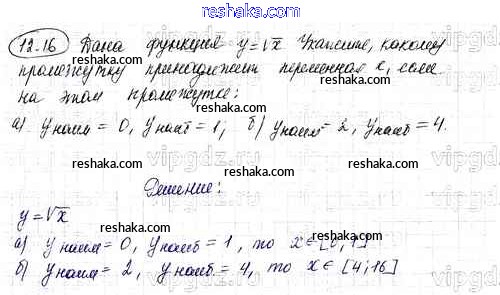 reshaka.com
12.16 Дана функция y=√x Укажите, какому
reshaka.com
промежутку принадлежит переменная x, если
на этом промежутке:
reshaka.com
а) yнаим = 0, yнаиб = 1; б) yнаим = 2, yнаиб = 4.
reshaka.com
reshaka.com
Решение:
reshaka.com
y=√x
reshaka.com
а) yнаим = 0, yнаиб = 1, то x∈[0;1]
б) yнаим = 2, yнаиб = 4, то x∈ [4;16]
reshaka.com